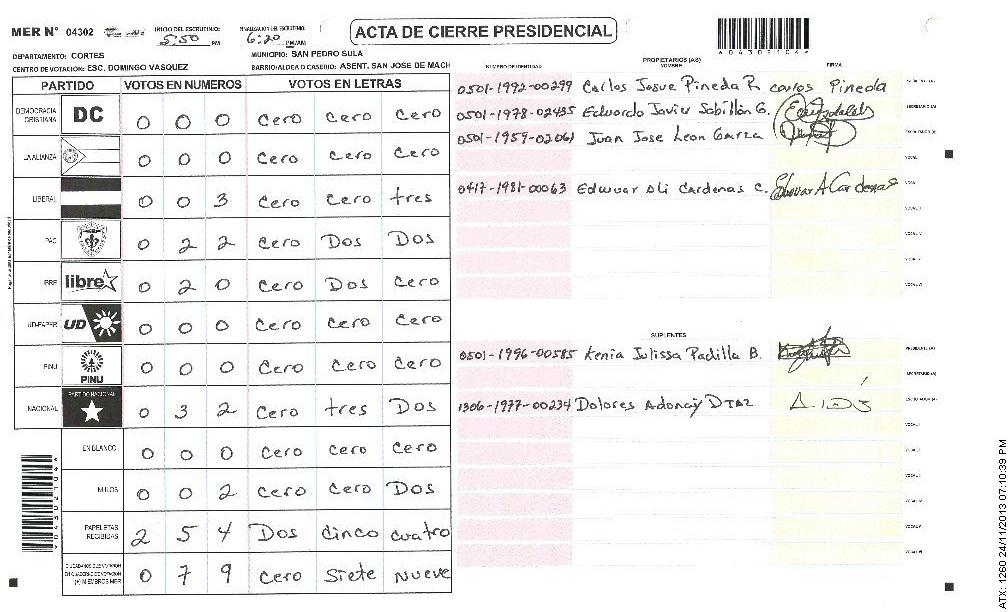 MER N° 04302 INICIO DEL ESCRUTINIO: 5:50 PM FINALIZACION DEL ESCRUTINIO: 6:20 PM/AM
ACTA DE CIERRE PRESIDENCIAL
0 4 3 0 2 1 0 4
DEPARTAMENTO: CORTES MUNICIPIO: SAN PEDRO SULA
CENTRO DE VOTACION: ESC. DOMINGO VASQUEZ BARRIO/ALDEA O CASERIO: ASENT. SAN JOSE DE MACH
PARTIDO VOTOS EN NUMEROS VOTOS EN LETRAS
DEMOCRACIA CRISTIANA DC 0 0 0 Cero Cero Cero
LA ALIANZA 0 0 0 Cero Cero Cero
LIBERAL 0 0 3 Cero Cero tres
PAC 0 2 2 Cero Dos Dos
LIBRE libre 0 2 0 Cero Dos Cero
UD-FAPER UD 0 0 0 Cero Cero Cero
PINU PINU 0 0 0 Cero Cero Cero
NACIONAL PARTIDO NACIONAL 0 3 2 Cero tres Dos
EN BLANCO 0 0 0 Cero Cero Cero
NULOS 0 0 2 Cero Cero Dos
PAPELETAS RECIBIDAS 2 5 4 Dos cinco cuatro
(+) MIEMBROS MER 0 7 9 Cero Siete nueve
PROPIETARIOS (AS)
NUMERO DE IDENTIDAD NOMBRE FIRMA
0501-1992-00299 Carlos Josue Pineda R. carlos Pineda
0501-1978-02435 Eduardo Javier Sabillón G. SECRETARIO (A)
0501-1959-02061 Juan Jose Leon Garza
VOCAL
0417-1981-00063 Edwuar Ali Cardenas C. Edwuar A Cardenas
SUPLENTES
0501-1996-00585 Kenia Julissa Padilla B. PRESIDENTE (A)
SECRETARIO (A)
1306-1977-00234 Dolores Adonay DIAZ
ATX: 1260 24/11/2013 07:10:39 PM